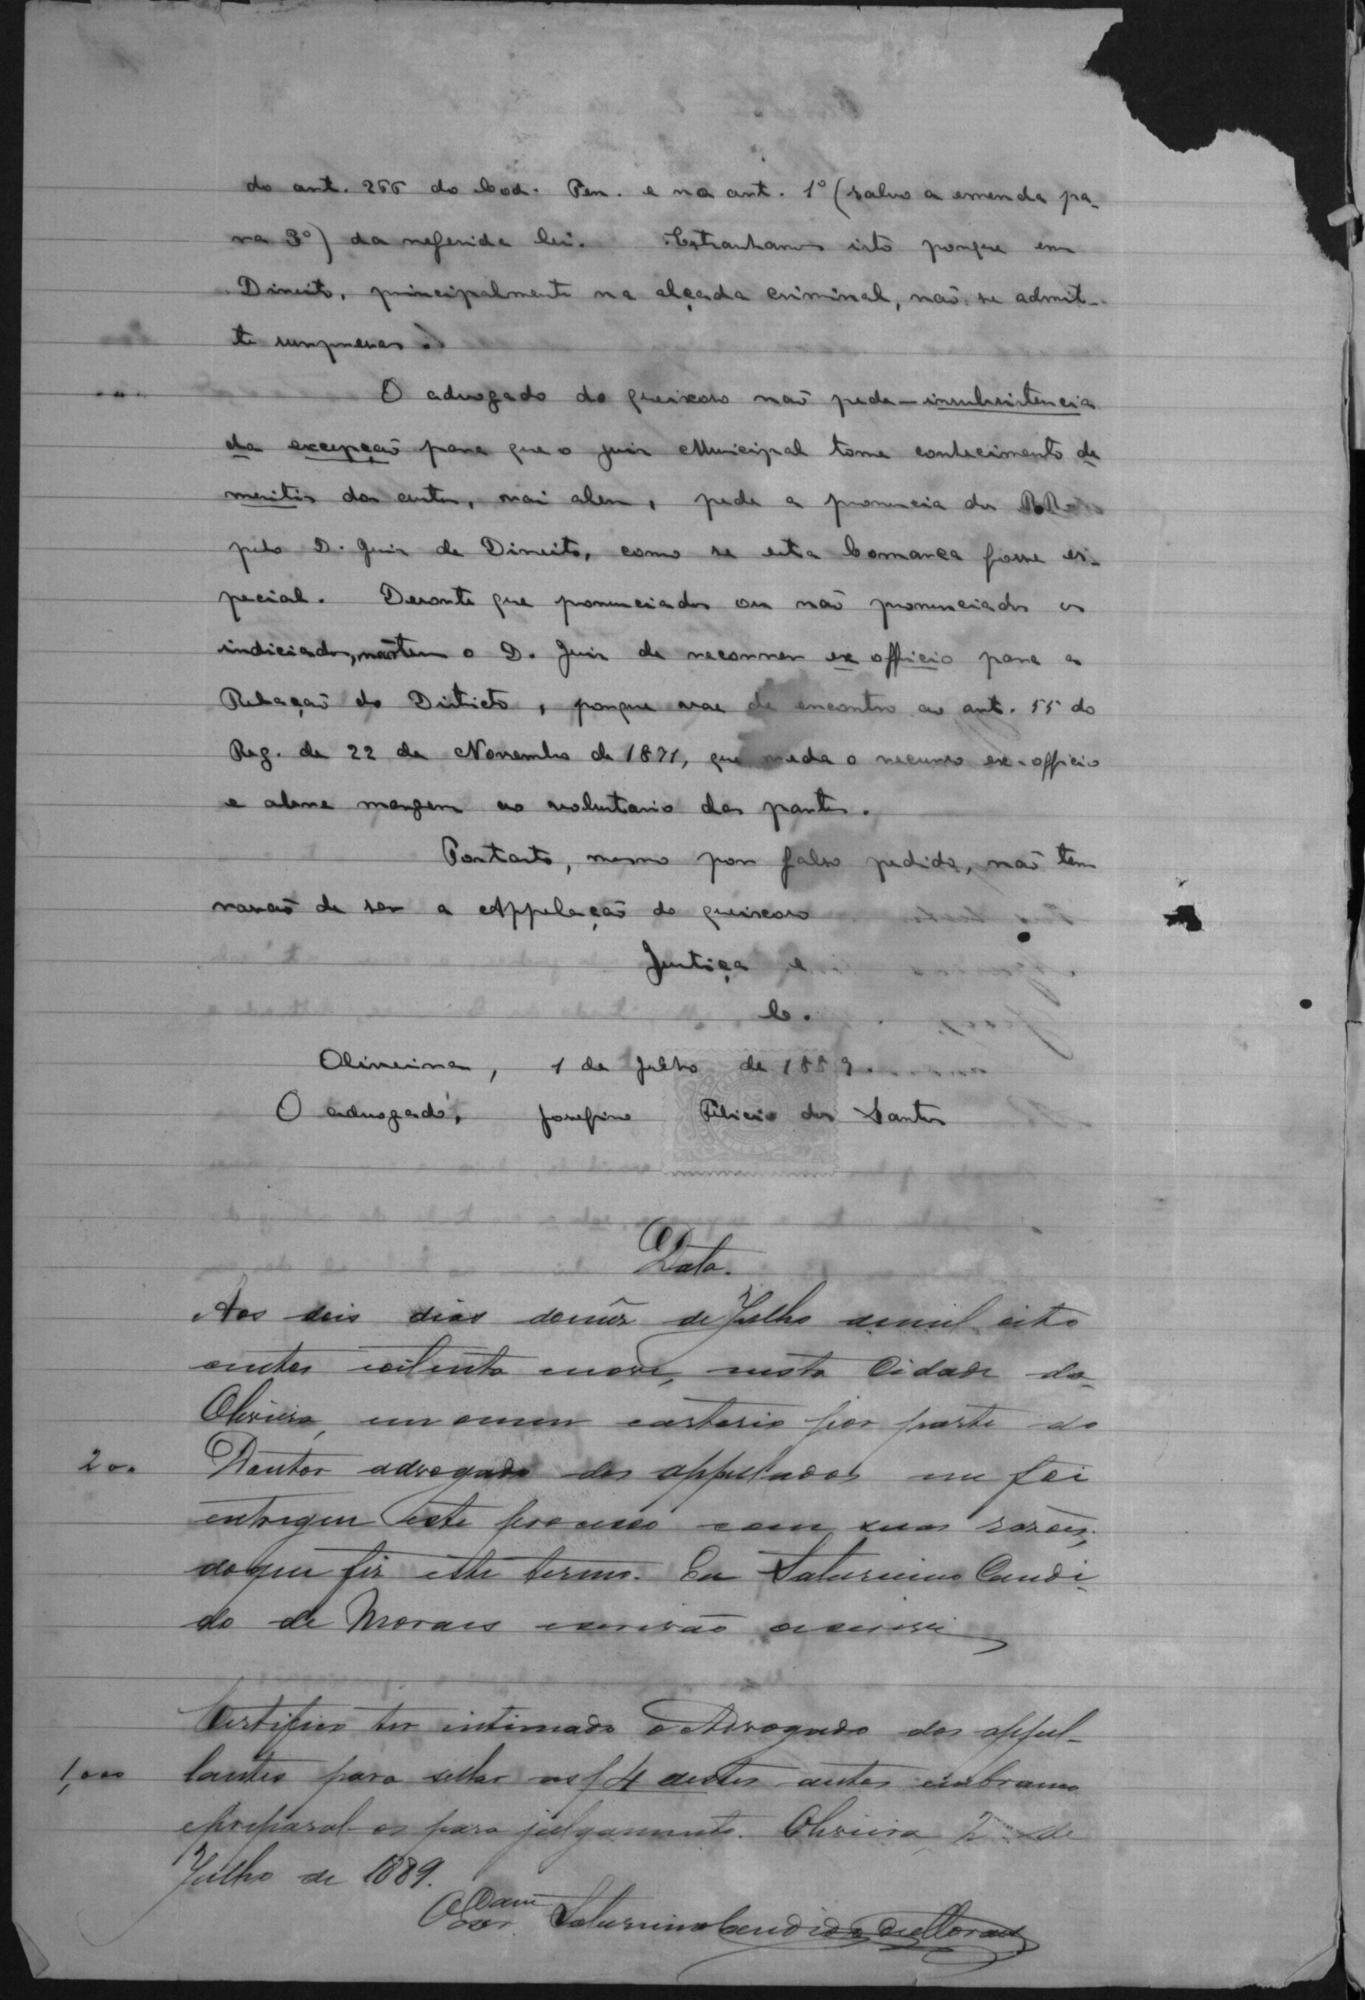 do art. 266 do Cod. Pen. e no art. 1º (salvo a emenda pa-
ra 3º) da referida lei. Estranhamos isto porque em
Direito, principalmente na alçada criminal, não se admit-
te surpresas.
O advogado do queixoso não pede — insubsistencia
da excepção para que o juiz Municipal tome conhecimento de
meritis dos autos, vai alem, pede a pronuncia dos RR
pelo D. Juiz de Direito, como se esta Comarca fosse es-
pecial. Desorte que pronunciados ou não pronunciados os
indiciados, não tem o D. Juiz de recorrer ex officio para a
Relação do Districto, porque vae de encontro ao art. 55 do
Reg. de 22 de Novembro de 1871, que veda o recurso ex-officio
e abre margem ao voluntario das partes.
Portanto, mesmo por falso pedido, não tem
rasão de ser a Appelação do queixoso
Justiça e
C.
Oliveira, 1 de Julho de 1889.
O advogado, Josefino Felicio dos Santos
Data.
Aos dois dias do mêz de Julho de mil oito
centos oitenta e nove, nesta Cidade da
Oliveira, em o meu cartorio por parte do
200 Doutor advogado dos appellados me foi
entregue este processo com suas rasões,
do que fiz este termo. Eu Saturnino Candi-
do de Moraes escrivão o escrevi
Certifico ter intimado o Advogado dos appel-
1,000 lantes para sellar as f 4 destes autos em branco
e preparal-os para julgamento. Oliveira 2 de
Julho de 1889.
O Escr. Saturnino Candido de Moraes